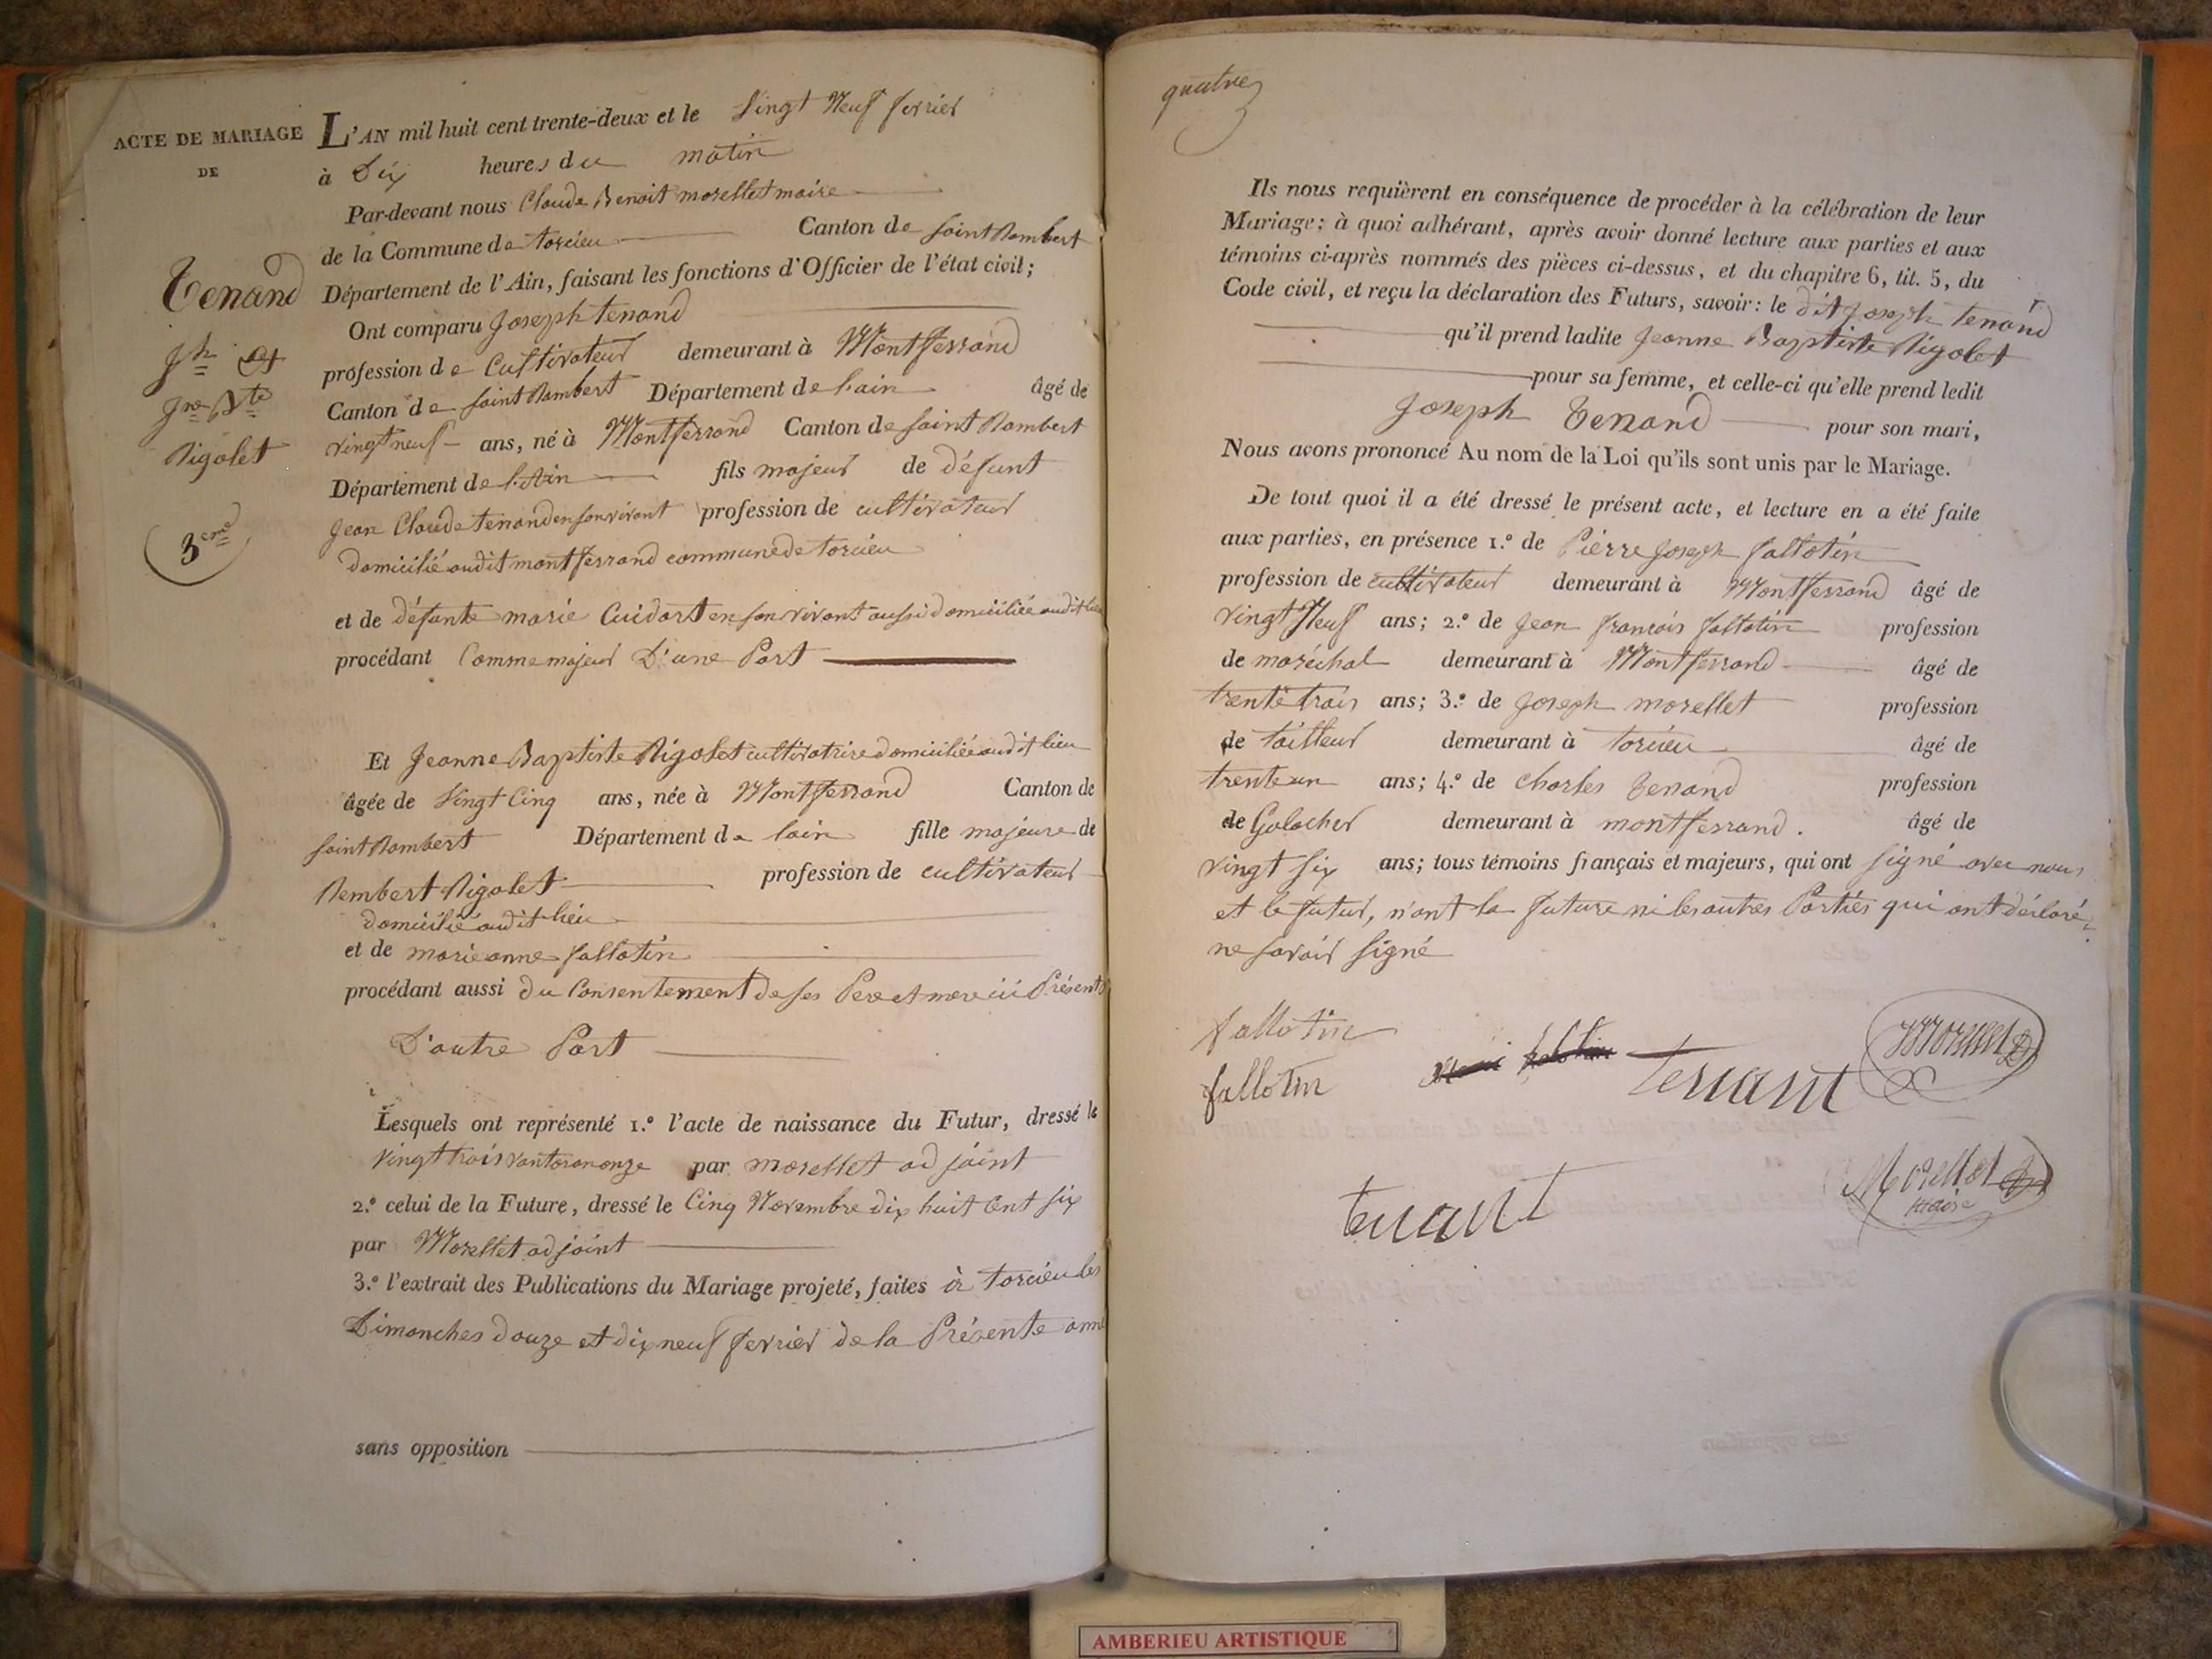 ACTE DE MARIAGE
DE
Tenand
Jh et
Jne Bte
Rigolet
3eme
L'AN mil huit cent trente-deux et le Vingt Neuf ferrier
à Dix heures du matin
Par-devant nous Claude Benoit morellet maire
de la Commune de torcieu Canton de Saint Rambert
Département de l'Ain, faisant les fonctions d'Officier de l'état civil;
Ont comparu Joseph tenand
profession de Cultivateur demeurant à Montferrand
Canton de Saint Rambert Département de lain âgé de
vingt neuf ans, né à Montferrand Canton de Saint Rambert
Département de l'Ain fils majeur de défunt
Jean Claude tenand en son vivant profession de cultivateur
domicilié audit montferrand commune de torcieu
et de défunte marie Cuidart en son vivant aussi domiciliée audit lieu
procédant Comme majeur D'une Part
Et Jeanne Baptiste Rigolet cultivatrice domiciliée audit lieu
âgée de Vingt Cinq ans, née à Montferrand Canton de
Saint Rambert Département de lain fille majeure de
Rembert Rigolet profession de cultivateur
domicilié audit lieu
et de marie anne fallotin
procédant aussi du Consentement de ses Pere et mere ici Présents
D'autre Part
Lesquels ont représenté 1.° l'acte de naissance du Futur, dressé le
Vingt trois vantose an onze par morellet adjoint
2.° celui de la Future, dressé le Cinq Novembre dix huit Cent six
par Morellet adjoint
3.° l'extrait des Publications du Mariage projeté, faites à torcieu les
Dimanches douze et dix neuf ferrier de la Présente anné
sans opposition
quatre
Ils nous requièrent en conséquence de procéder à la célébration de leur
Mariage; à quoi adhérant, après avoir donné lecture aux parties et aux
témoins ci-après nommés des pièces ci-dessus, et du chapitre 6, tit. 5, du
Code civil, et reçu la déclaration des Futurs, savoir: le dit Joseph tenand
qu'il prend ladite Jeanne Baptiste Rigolet
pour sa femme, et celle-ci qu'elle prend ledit
Joseph Tenand pour son mari,
Nous avons prononcé Au nom de la Loi qu'ils sont unis par le Mariage.
De tout quoi il a été dressé le présent acte, et lecture en a été faite
aux parties, en présence 1.° de Pierre Joseph fallotin
profession de cultivateur demeurant à Montferrand âgé de
vingt Neuf ans; 2.° de Jean françois fallotin profession
de maréchal demeurant à Montferrand âgé de
trente trois ans; 3.° de Joseph morellet profession
de tailleur demeurant à torcieu âgé de
trente un ans; 4.° de Charles Tenand profession
de Galocher demeurant à montferrand. âgé de
vingt six ans; tous témoins français et majeurs, qui ont signé avec nous
et le futur, n'ont la future ni les autres Parties qui ont déclaré
ne savoir signé
fallotin
fallotin
tenant
Morellet
tenant
Morellet
Maire
AMBERIEU ARTISTIQUE